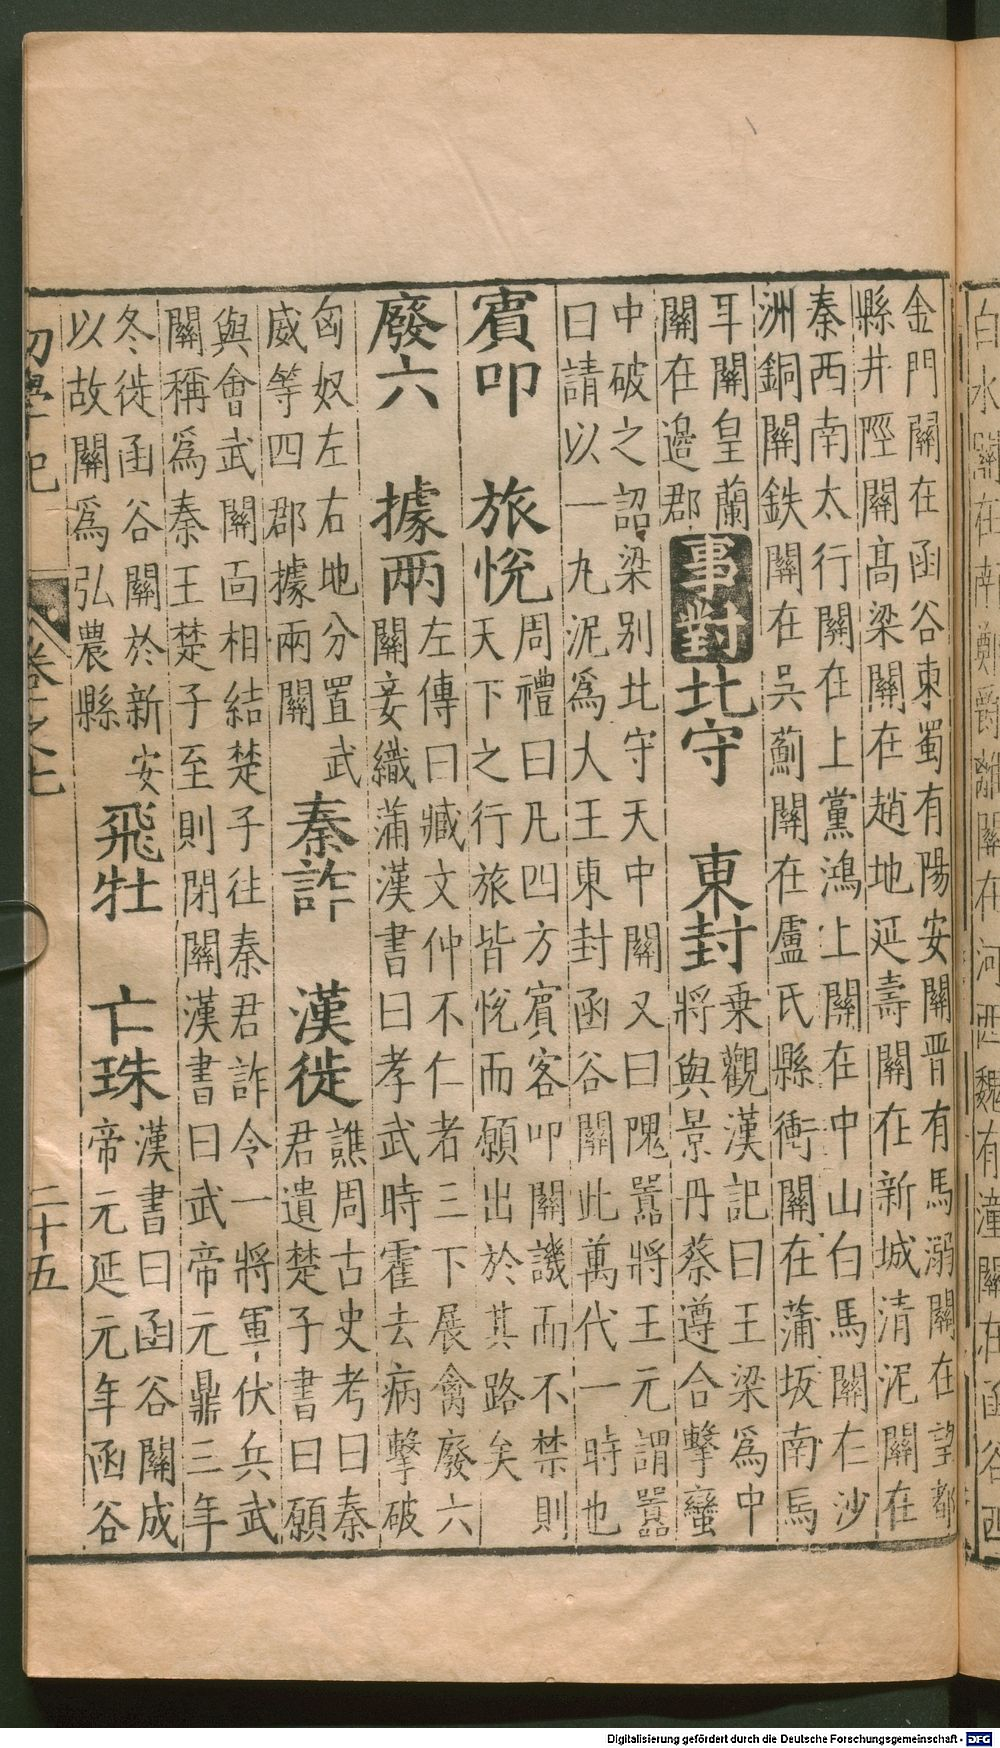 金門關在函谷東蜀有陽安關晋有馬溺關在望都
縣井陘關高梁關在趙地延壽關在新城清泥關在
秦西南太行關在上黨鴻上關在中山白馬關在沙
洲銅關鉄關在吳薊關在盧氏縣衝關在蒲坂南馬
耳關皇蘭
關在邉郡
事對
北守　東封
乗觀漢記曰王梁爲中
將與景丹蔡遵合擊蠻
中破之詔梁别北守天中關又曰隗囂將王元謂囂
曰請以一九泥爲大王東封函谷關此萬代一時也
賔叩　旅悅
周禮曰凡四方賔客叩關譏而不禁則
天下之行旅皆悅而願出於其路矣
廢六　據兩
左傳曰臧文仲不仁者三下展禽廢六
關妾織蒲漢書曰孝武時霍去病擊破
匈奴左右地分置武
威等四郡據兩關
秦詐　漢徙
譙周古史考曰秦
君遺楚子書曰願
與會武關靣相結楚子往秦君詐令一將軍伏兵武
關稱爲秦王楚子至則閉關漢書曰武帝元鼎三年
冬徙函谷關於新安
以故關爲弘農縣
飛牡　亡珠
漢書曰函谷關成
帝元延元年函谷
初學記
卷之七
二十五
Digitalisierung gefördert durch die Deutsche Forschungsgemeinschaft - DFG